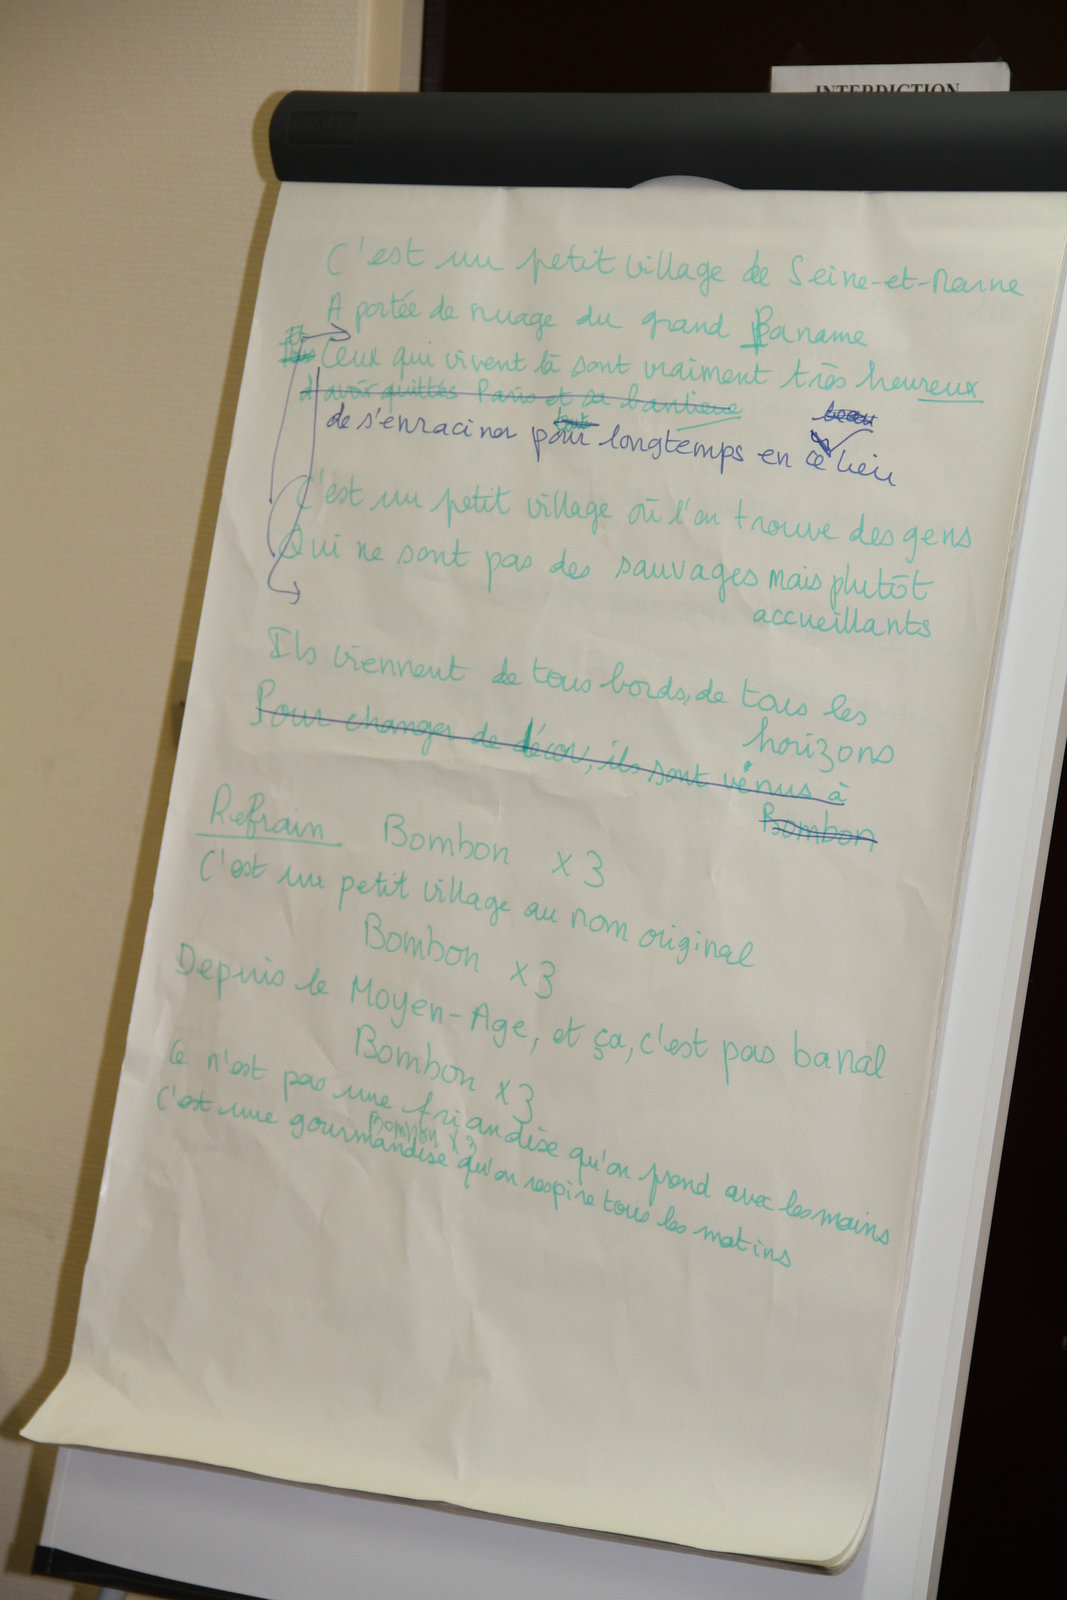 INTERDICTION
C'est un petit village de Seine-et-Marne
A portée de nuage du grand Paname
Ceux qui vivent là sont vraiment très heureux
d'avoir quittés Paris et sa banlieue
beau
de s'enraciner pour longtemps en ce lieu
C'est un petit village où l'on trouve des gens
Qui ne sont pas des sauvages mais plutôt
accueillants
Ils viennent de tous bords, de tous les
horizons
Pour changer de décor, ils sont vénus à
Bombon
Refrain Bombon x3
C'est un petit village au nom original
Bombon x3
Depuis le Moyen-Age, et ça, c'est pas banal
Bombon x3
Ce n'est pas une friandise qu'on prend avec les mains
Bombon x3
C'est une gourmandise qu'on respire tous les matins